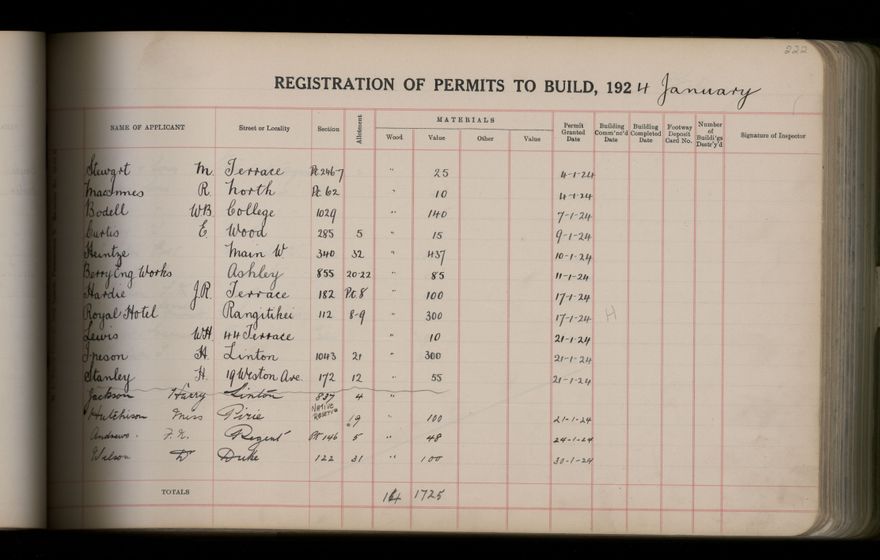 222
REGISTRATION OF PERMITS TO BUILD, 1924 January
NAME OF APPLICANT Street or Locality Section Allotment MATERIALS Wood Value Other Value Permit Granted Date Building Comm'nc'd Date Building Completed Date Footway Deposit Card No. Number of Buildi'gs Destr'y'd Signature of Inspector
Stewart M. Terrace Pt 2467 " 25 4-1-24
MacInnes R. North Pt 62 " 10 4-1-24
Bodell W.B. College 1029 " 140 7-1-24
Curtis E. Wood 285 5 " 15 9-1-24
Heintze Main W 340 32 " 437 10-1-24
Berry Eng. Works Ashley 855 20-22 " 85 11-1-24
Hardie J.R. Terrace 182 Pt 8 " 100 17-1-24
Royal Hotel Rangitikei 112 8-9 " 300 17-1-24 H
Lewis W.H. 44 Terrace " 10 21-1-24
Ipeson H. Linton 1043 21 " 300 21-1-24
Stanley H. 19 Weston Ave. 172 12 " 55 21-1-24
Jackson Harry Linton 837 4 "
Hutchison Miss Pirie Native Reserve 19 " 100 21-1-24
Andrews F.N. Regent Pt 146 5 " 48 24-1-24
Wilson D Duke 122 31 " 100 30-1-24
TOTALS 14 1725